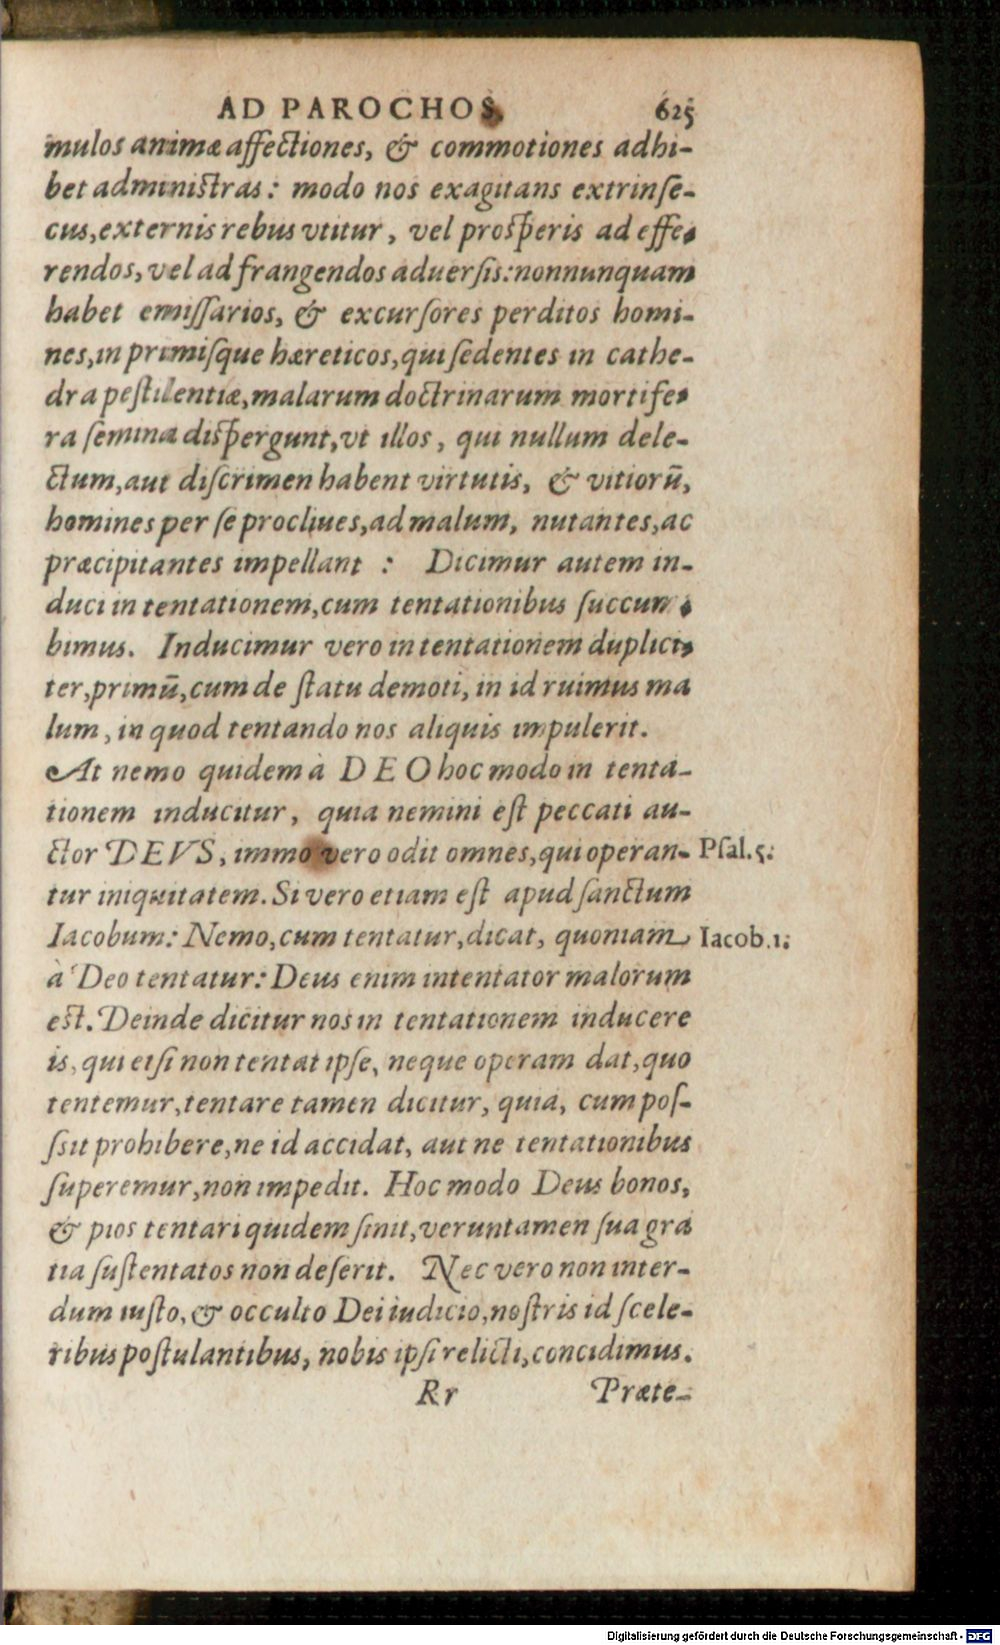 AD PAROCHOS. 625
mulos animæ affectiones, & commotiones adhi-
bet administras: modo nos exagitans extrinſe-
cus, externis rebus vtitur, vel proſperis ad effe-
rendos, vel ad frangendos aduerſis: nonnunquam
habet emiſſarios, & excurſores perditos homi-
nes, in primiſque hæreticos, qui ſedentes in cathe-
dra peſtilentiæ, malarum doctrinarum mortife-
ra ſemina diſpergunt, vt illos, qui nullum dele-
ctum, aut diſcrimen habent virtutis, & vitiorū,
homines per ſe procliues, ad malum, nutantes, ac
præcipitantes impellant : Dicimur autem in-
duci in tentationem, cum tentationibus ſuccum-
bimus. Inducimur vero in tentationem duplici-
ter, primū, cum de ſtatu demoti, in id ruimus ma
lum, in quod tentando nos aliquis impulerit.
At nemo quidem à DEO hoc modo in tenta-
tionem inducitur, quia nemini eſt peccati au-
ctor DEVS, immo vero odit omnes, qui operan- Pſal.5.
tur iniquitatem. Si vero etiam eſt apud ſanctum
Iacobum: Nemo, cum tentatur, dicat, quoniam Iacob.1.
à Deo tentatur: Deus enim intentator malorum
eſt. Deinde dicitur nos in tentationem inducere
is, qui etſi non tentat ipſe, neque operam dat, quo
tentemur, tentare tamen dicitur, quia, cum poſ-
ſsit prohibere, ne id accidat, aut ne tentationibus
ſuperemur, non impedit. Hoc modo Deus bonos,
& pios tentari quidem ſinit, veruntamen ſua gra
tia ſuſtentatos non deſerit. Nec vero non inter-
dum iuſto, & occulto Dei iudicio, noſtris id ſcele-
ribus poſtulantibus, nobis ipſi relicti, concidimus.
Rr Præte-
Digitalisierung gefördert durch die Deutsche Forschungsgemeinschaft - DFG